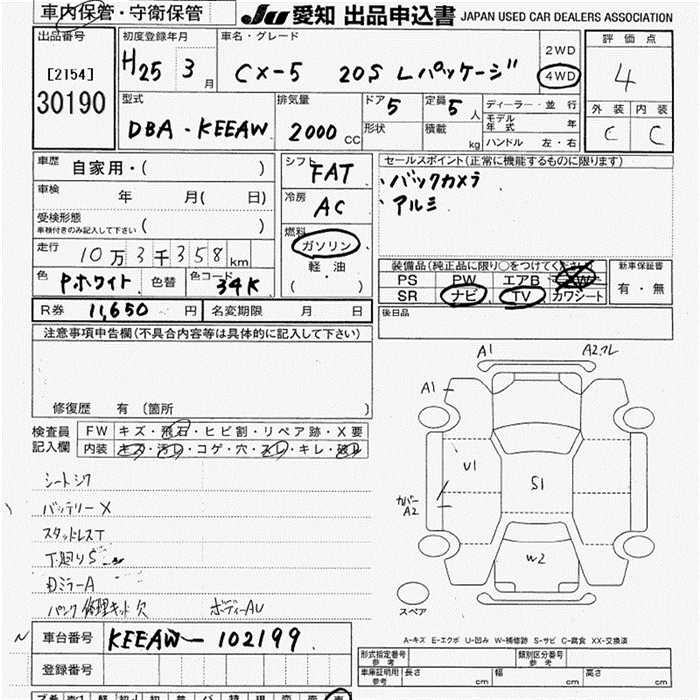 車内保管・守衛保管
JU 愛知 出品申込書 JAPAN USED CAR DEALERS ASSOCIATION
出品番号
[2154]
30190
初度登録年月
H25 3月
車名・グレード
CX-5 20S Lパッケージ
2WD
4WD
評価点
4
外装 内装
C C
型式
DBA-KEEAW
排気量
2000 CC
ドア 5
形状
定員 5 人
積載 kg
ディーラー・並行
モデル年式 年
ハンドル 左・右
車歴 自家用・( )
車検 年 月( 日)
受検形態
車検付きのみ記入して下さい ( )
走行 10万3千358km
色 Pホワイト 色替 色コード 34K
シフト FAT
冷房 AC
燃料
ガソリン
軽油
( ・ )
セールスポイント(正常に機能するものに限ります)
・バックカメラ
・アルミ
装備品(純正品に限り○をつけてください)
PS PW エアB AW
SR ナビ TV カワシート
新車保証書
有・無
R券 11,650 円 名変期限 月 日
後日品
注意事項申告欄(不具合内容等は具体的に記入して下さい)
修復歴 有(箇所 )
検査員記入欄
FW キズ・飛石・ヒビ割・リペア跡・X要
内装 キズ・汚レ・コゲ・穴・スレ・キレ・破レ
シートシワ
バッテリーX
スタッドレスT
下廻りS
DミラーA
パンク修理キット欠 ボディーAU
A1 A2フレ
A1
U1 S1
カバーA2
W2
スペア
A-キズ E-エクボ U-凹み W-補修跡 S-サビ C-腐食 XX-交換済
車台番号 KEEAW-102199
登録番号
形式指定番号 参考
類別区分番号 参考
車庫証明用 参考 長さ cm 幅 cm 高さ cm